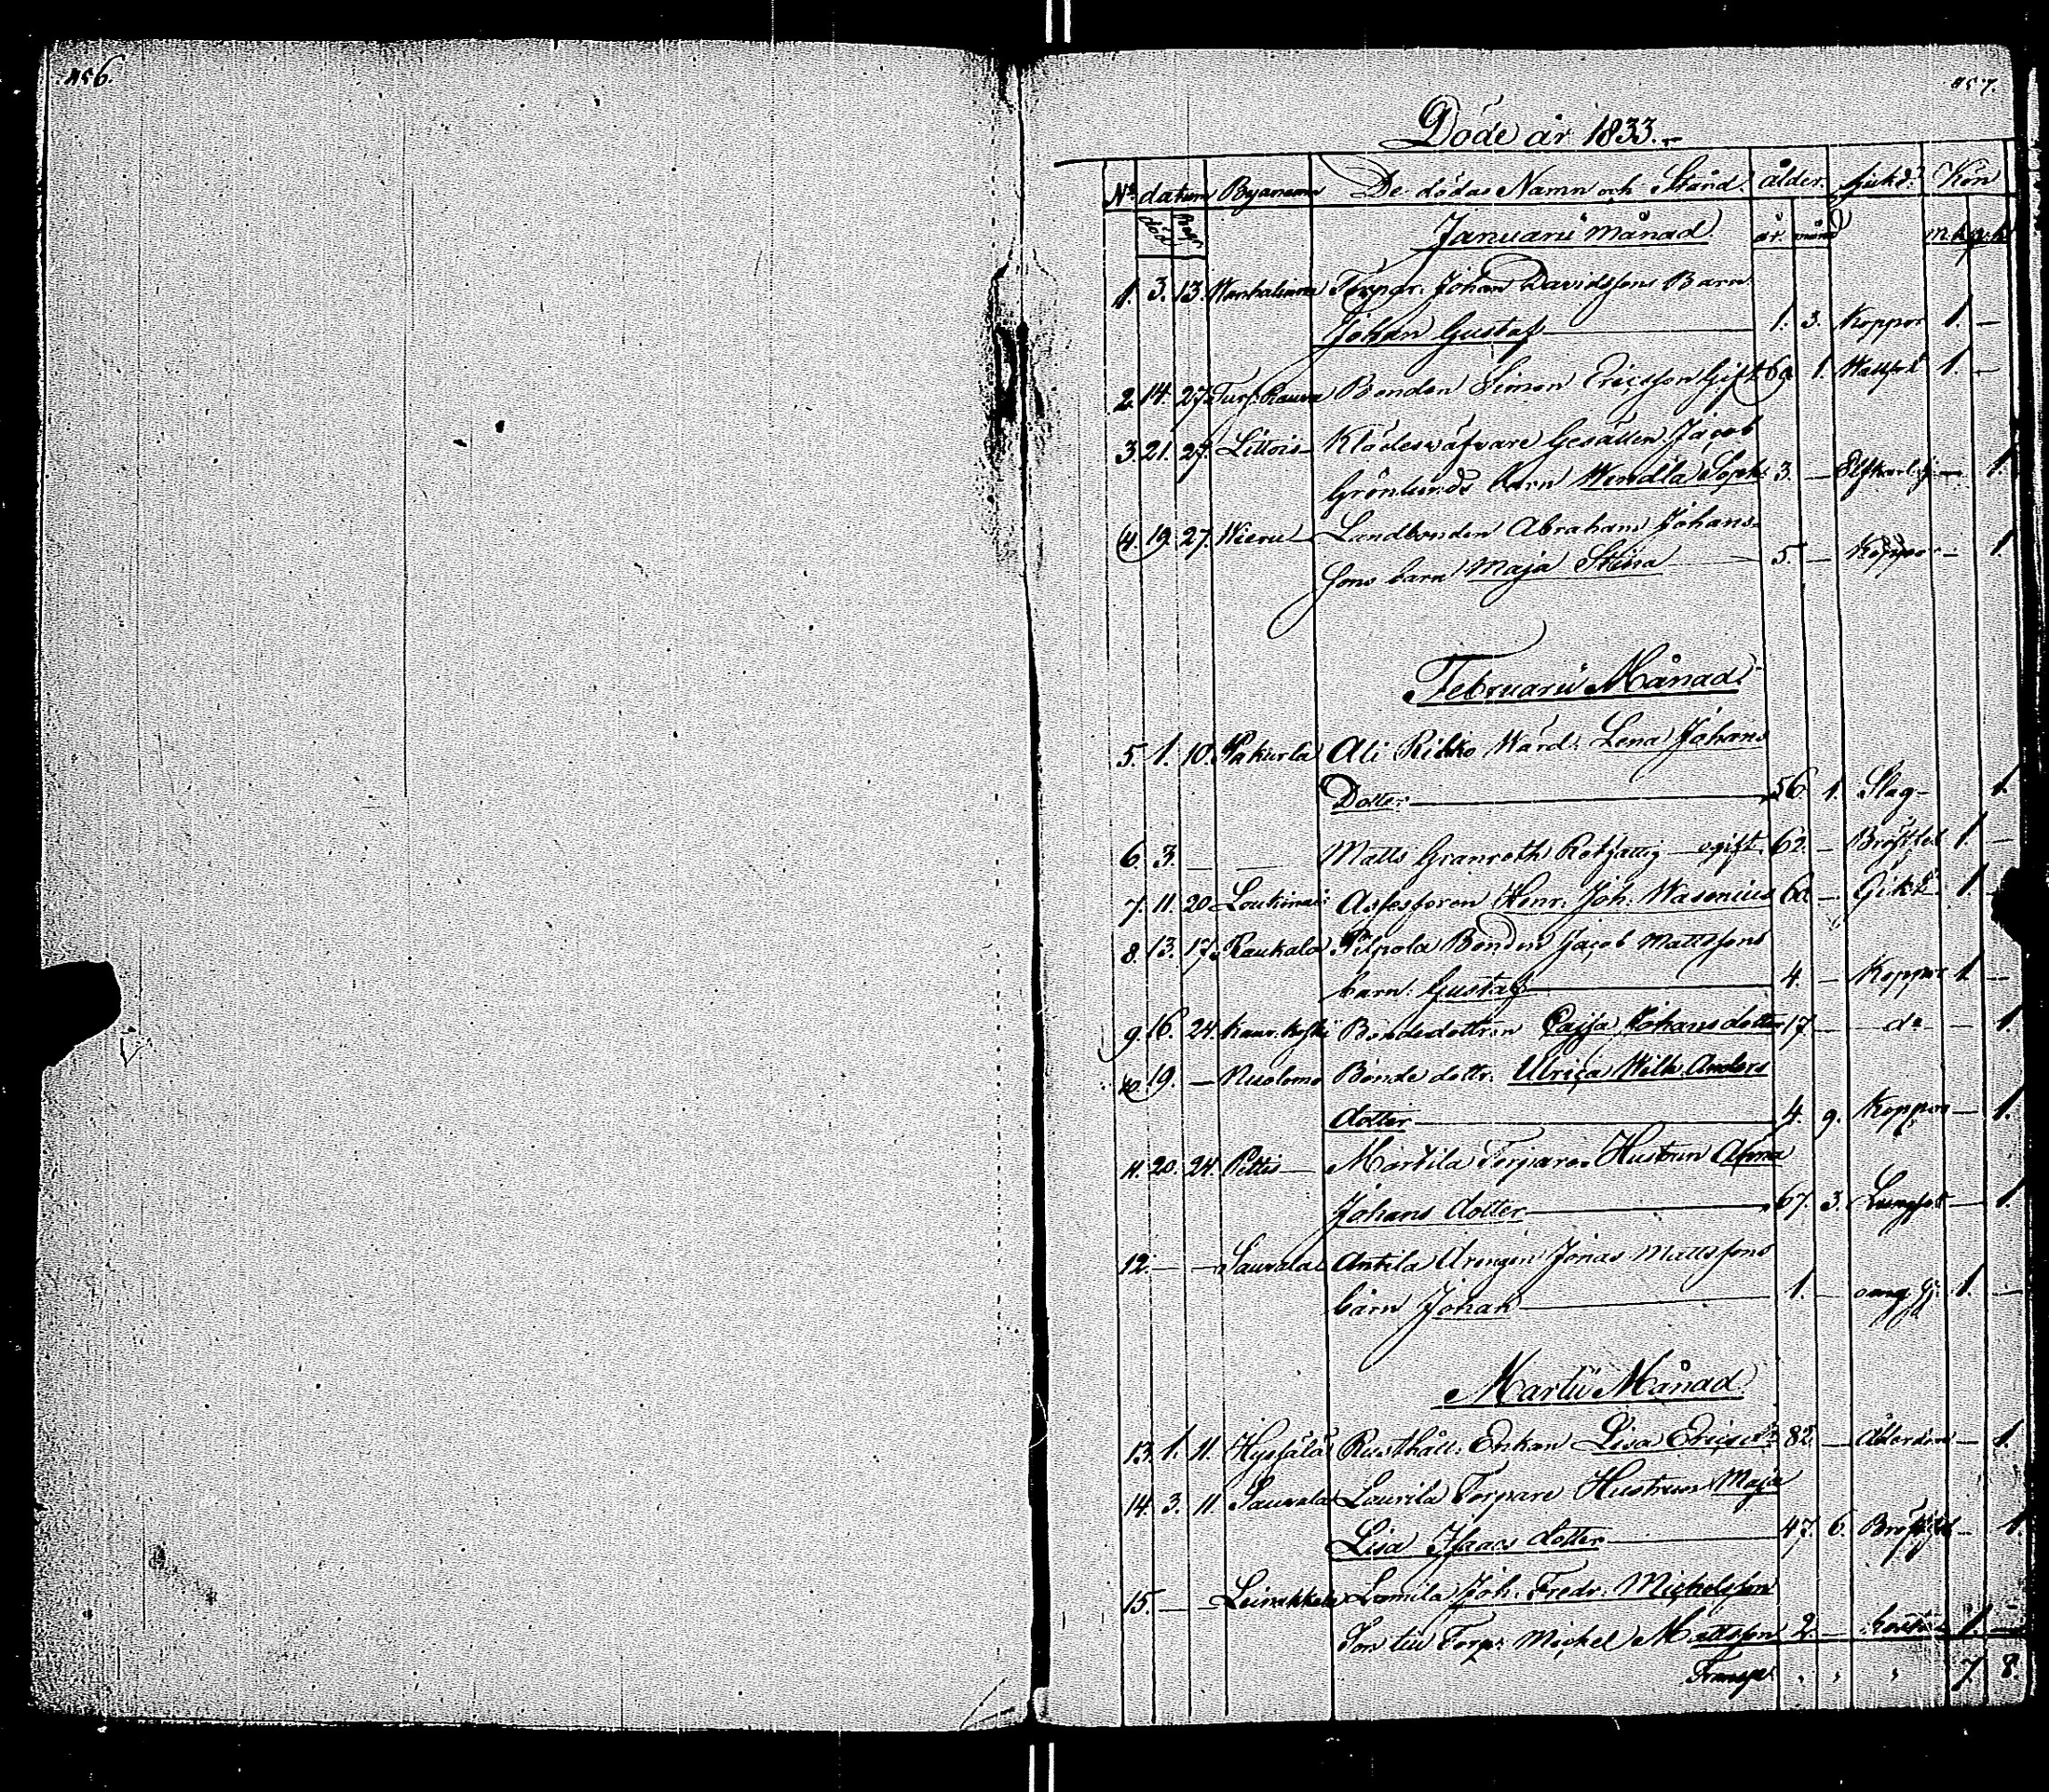 456.
457.
Döde år 1833.
No datum Byanamn De dödas Namn och Stånd ålder. sjukd. Kön
död begr Januarii månad år. månad m.k. q.k.
1. 3. 13. Torpar. Johan Davidssons Barn
Johan Gustaf 1. 3. Koppor 1. —
2. 14. 27. Bonden Simon Ericsson Gift 1. 1. —
3. 21. 27. Littois Klädesväfvare Gesällen Jacob
Grönlunds barn Wendla Soph. 3. — — 1.
4. 19. 27. Wieru Landbonden Abraham Johans-
sons barn Maja Stina 5. — Koppor — 1
Februarii Månad
5. 1. 10. Pakurla Ali Rikko Wärd. Lena Johans
Dotter 56. 1. Slag — 1.
6. 3. — — Matts Granroth Rotfattig ogift. 62. — 1. —
7. 11. 20 Assessoren Henr. Joh. Wasenius — 1. —
8. 13. 17. Kaukala Bonden Jacob Mattssons
barn. Gustaf 4. — Koppor 1 —
9. 16. 24. Bondedottren Cajsa Johansdotter 17. — do — 1.
10. 19. — Nuolemo Bonde dottr. Ulrica Wilh. Anders
dotter 4. 9. Koppor — 1.
11. 20. 24. Pettis Marttila Torpare Hustrun Anna
Johans dotter 67. 3. Lungsot — 1.
12. — — Sauvala Antila Drengen Jonas Mattssons
barn Johan 1. — 1. —
Martii Månad.
13. 1. 11. Rusthåll. Enkan Lisa Ericsd. 82. — Ålderdom — 1.
14. 3. 11 Sauvala Laurila Torpare Hustrun Maja
Lisa Isaacs dotter 47. 6. — 1.
15. — — Joh. Fredr. Michelsson
Son till Torp. Mickel Mattsson 2. — 1. —
Transp. 7. 8.